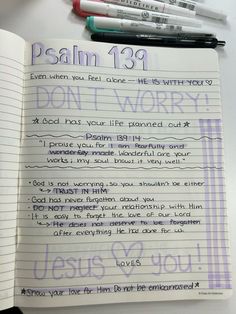 Psalm 139
Even when you feel alone - HE IS WITH YOU ♡
DON'T WORRY!
★ God has your life planned out ★
Psalm 139:14
"I praise you for I am fearfully and
wonderfully made. Wonderful are your
works; my soul knows it very well."
• God is not worrying, so you shouldn't be either
↳ TRUST IN HIM
• God has never forgotten about you
• DO NOT neglect your relationship with Him
• It is easy to forget the love of our Lord
↳ He does not deserve to be forgotten
after everything He has done for us
Jesus ♡ you!
LOVES
★ Show your love for Him. Do not be embarrassed ★